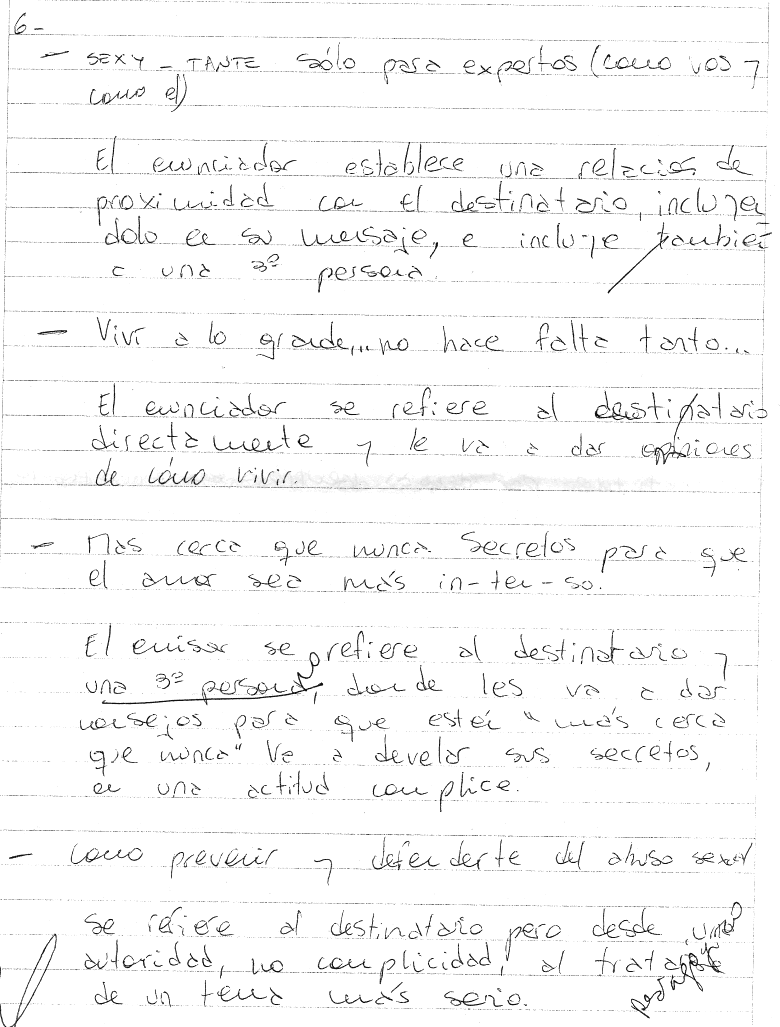 6-
- SEXY - TANTE sólo para expertos (como vos y
como el)
El enunciador establece una relación de
proximidad con el destinatario, incluyen
dolo en su mensaje, e incluye también
a una 3ª persona.
- Viví a lo grande... no hace falta tanto...
El enunciador se refiere al destinatario
directamente y le va a dar opiniones
de cómo vivir.
- Mas cerca que nunca. Secretos para que
el amor sea más in-ten-so.
El emisor se refiere al destinatario y
una 3ª persona, donde les va a dar
consejos para que estén "más cerca
que nunca" Va a develar sus secretos,
en una actitud complice.
- Como prevenir y defenderte del abuso sexual
se refiere al destinatario pero desde una
autoridad, no complicidad, al tratarse
de un tema más serio.